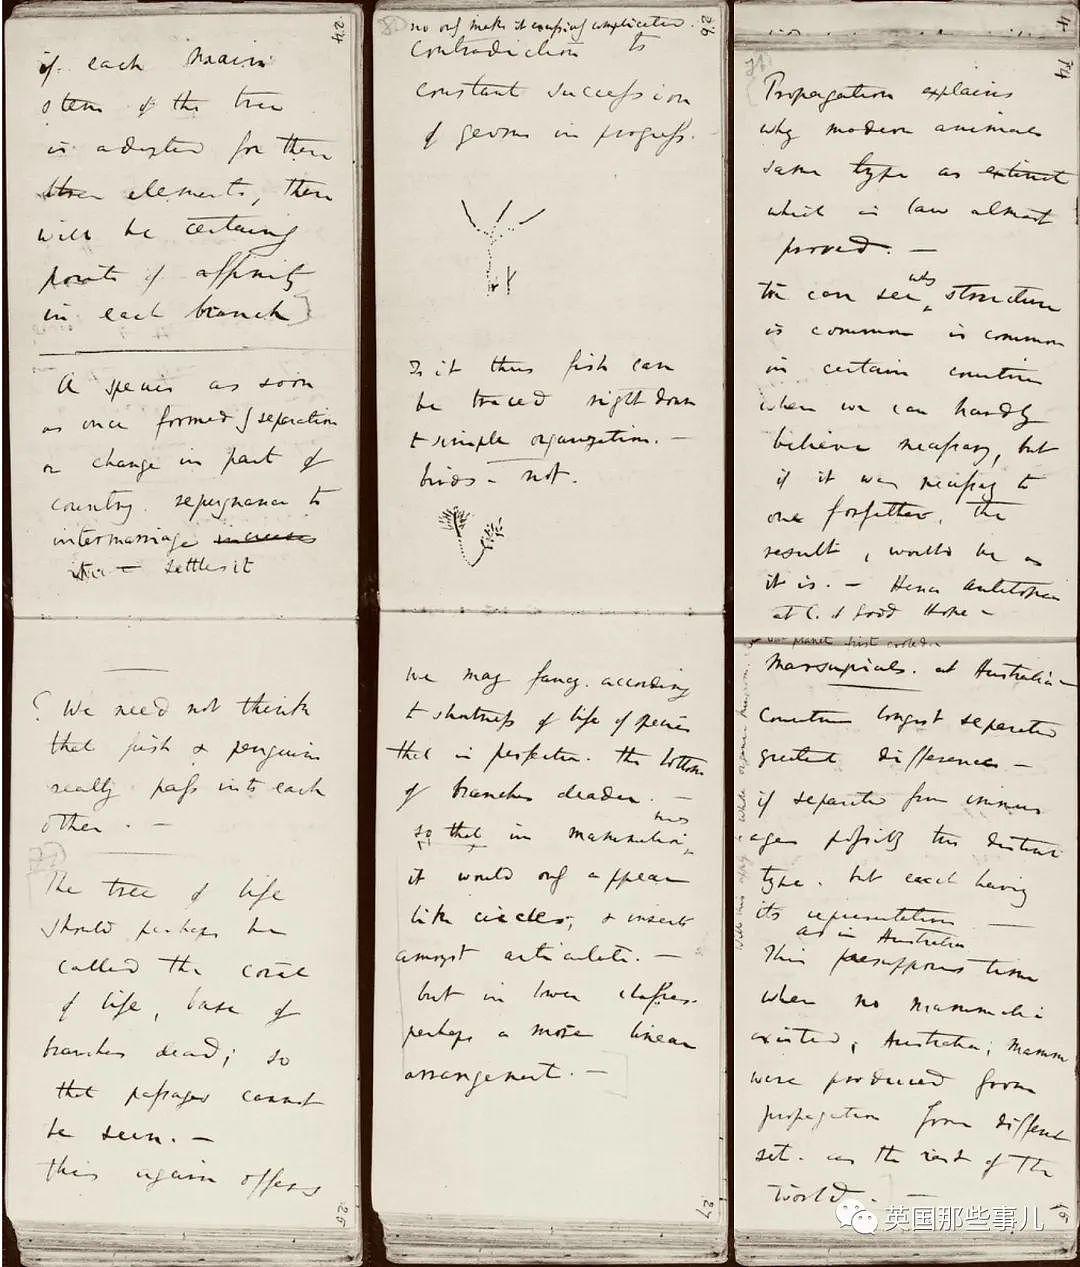 24
if each main
stem of the tree
is adapted for these
three elements, there
will be certainly
points of affinity
in each branch
A species as soon
as once formed by separation
or change in part of
country. repugnance to
intermarriage increases
it — settles it
? We need not think
that fish & penguins
really pass into each
other. —
The tree of life
should perhaps be
called the coral
of life, base of
branches dead; so
that passages cannot
be seen. —
this again offers
25
26
no only makes it excessively complicated.
contradiction to
constant succession
of germs in progress. —
Is it thus fish can
be traced right down
to simple organization. —
birds — not.
We may fancy. according
to shortness of life of species
that in perfection. the bottom
of branches deaden. —
so that in mammalia, birds
it would only appear
like circles; & insects
amongst articulata. —
but in lower classes
perhaps a more linear
arrangement. —
27
14
Propagation explains
why modern animals
same type as extinct
which is law almost
proved. —
We can see why structure
is common is common
in certain countries
when we can hardly
believe necessary, but
if it was necessary to
one forefather, the
result, would be as
it is. — Hence Antelopes
at C. of Good Hope —
our planet first cooled.
Marsupials. at Australia —
Countries longest separated
greatest differences —
if separated from immens
ages possibly two distinct
type. but each having
its representatives —
as in Australia
This presupposes time
when no mammalia
existed; Australia; Mamm
were produced from
propagation from different
set. as the rest of the
world. —
15
英国那些事儿